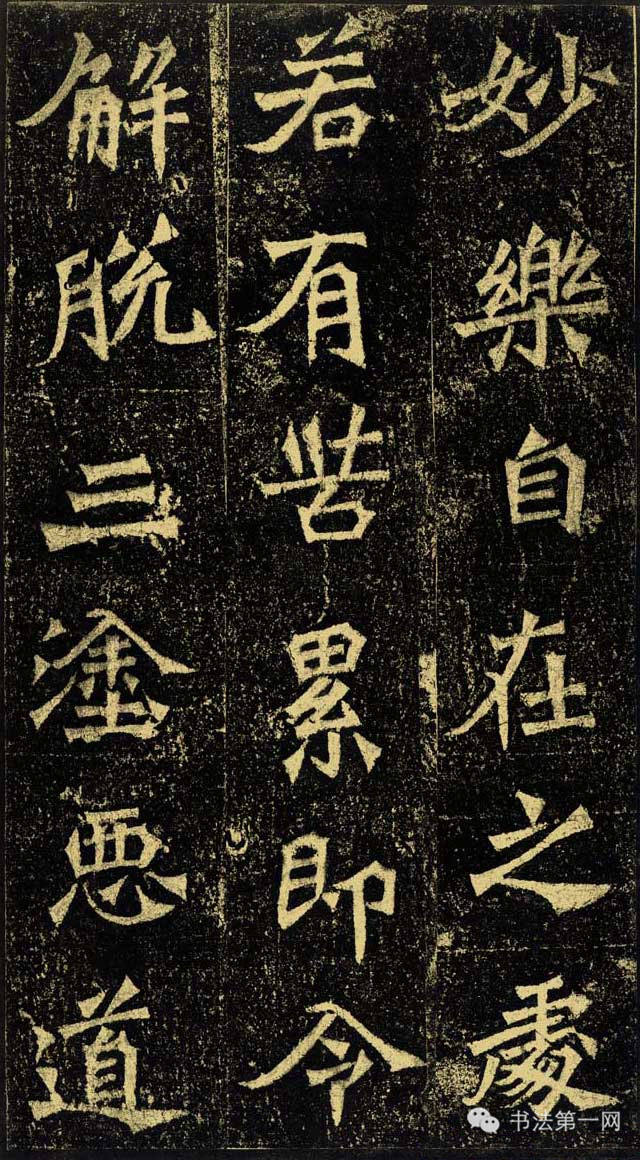 妙樂自在之處
若有苦累即令
解脱三塗惡道
书法第一网